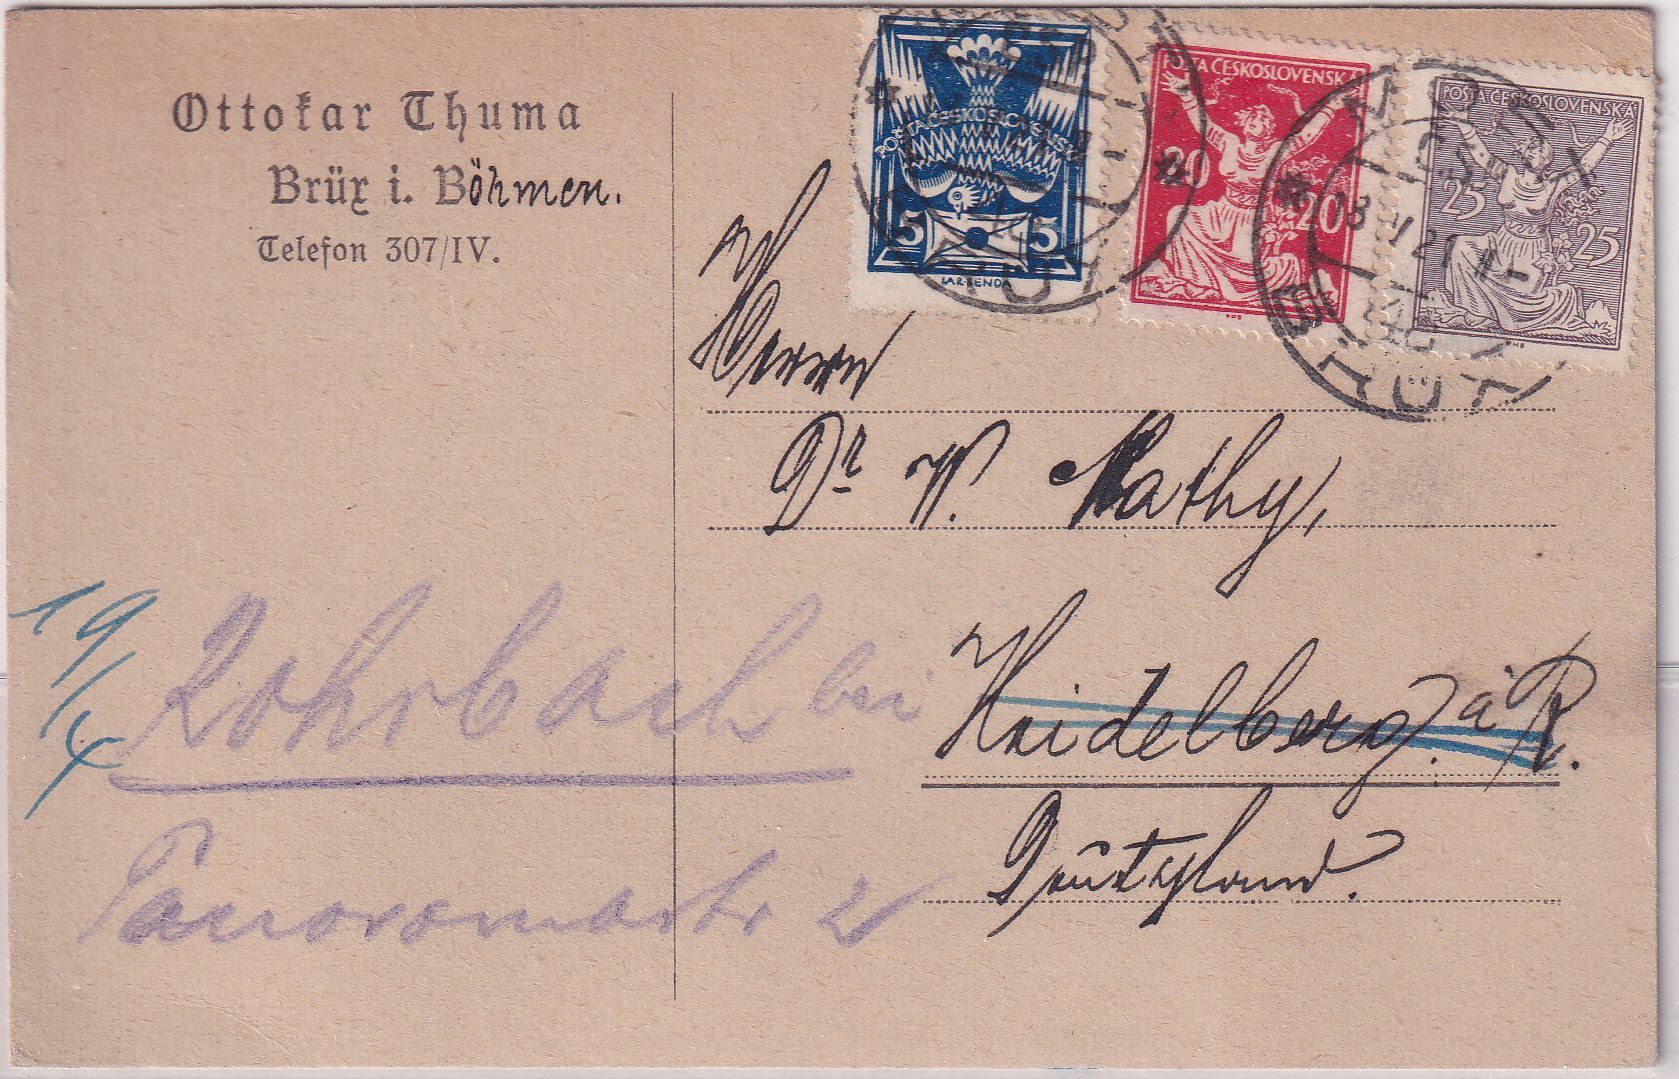 Ottokar Thuma
Brüx i. Böhmen.
Telefon 307/IV.
POŠTA ČESKOSLOVENSKÁ
5 5
JAR. BENDA
POŠTA ČESKOSLOVENSKÁ
20 20
POŠTA ČESKOSLOVENSKÁ
25 25
BRÜX
Herrn
Dr W. Mathy,
Heidelberg. a R.
Deutschland.
19/4
Rohrbach bei
Panoramastr 2